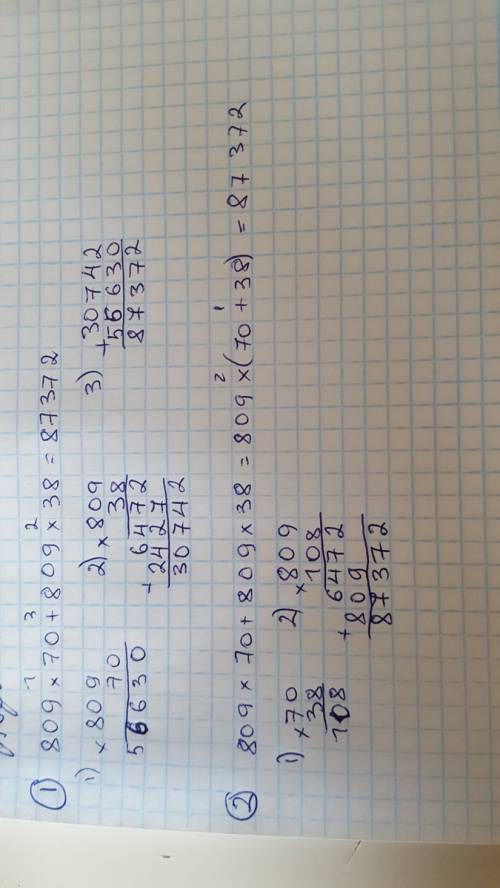 ①
1 3 2
809 × 70 + 809 × 38 = 87372
1) × 809
70
56630
2) × 809
38
6472
+ 2427
30742
3) + 30742
56630
87372
②
2 1
809 × 70 + 809 × 38 = 809 × (70 + 38) = 87372
1) × 70
38
108
2) × 809
108
6472
+ 809
87372